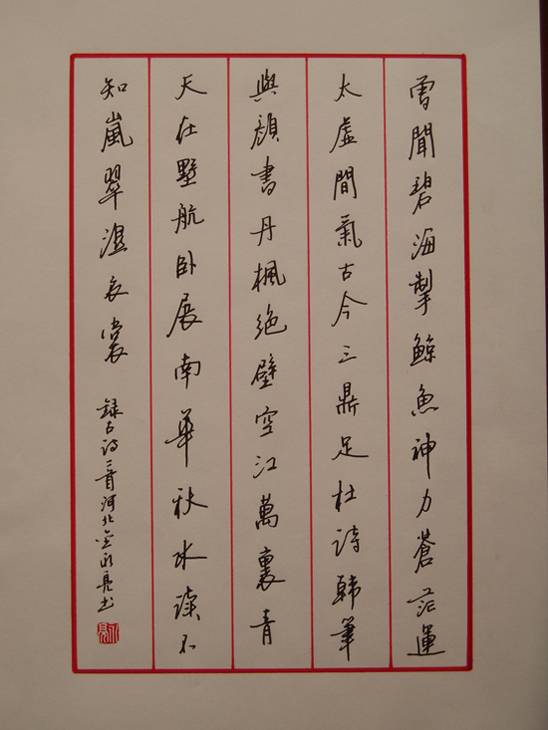 曾聞碧海掣鯨魚神力蒼茫運
太虛間氣古今三鼎足杜詩韓筆
與顏書丹楓絶壁空江萬裏青
天在墅航卧展南華秋水读不
知嵐翠濕衣裳
録古诗二首河北金永亮书